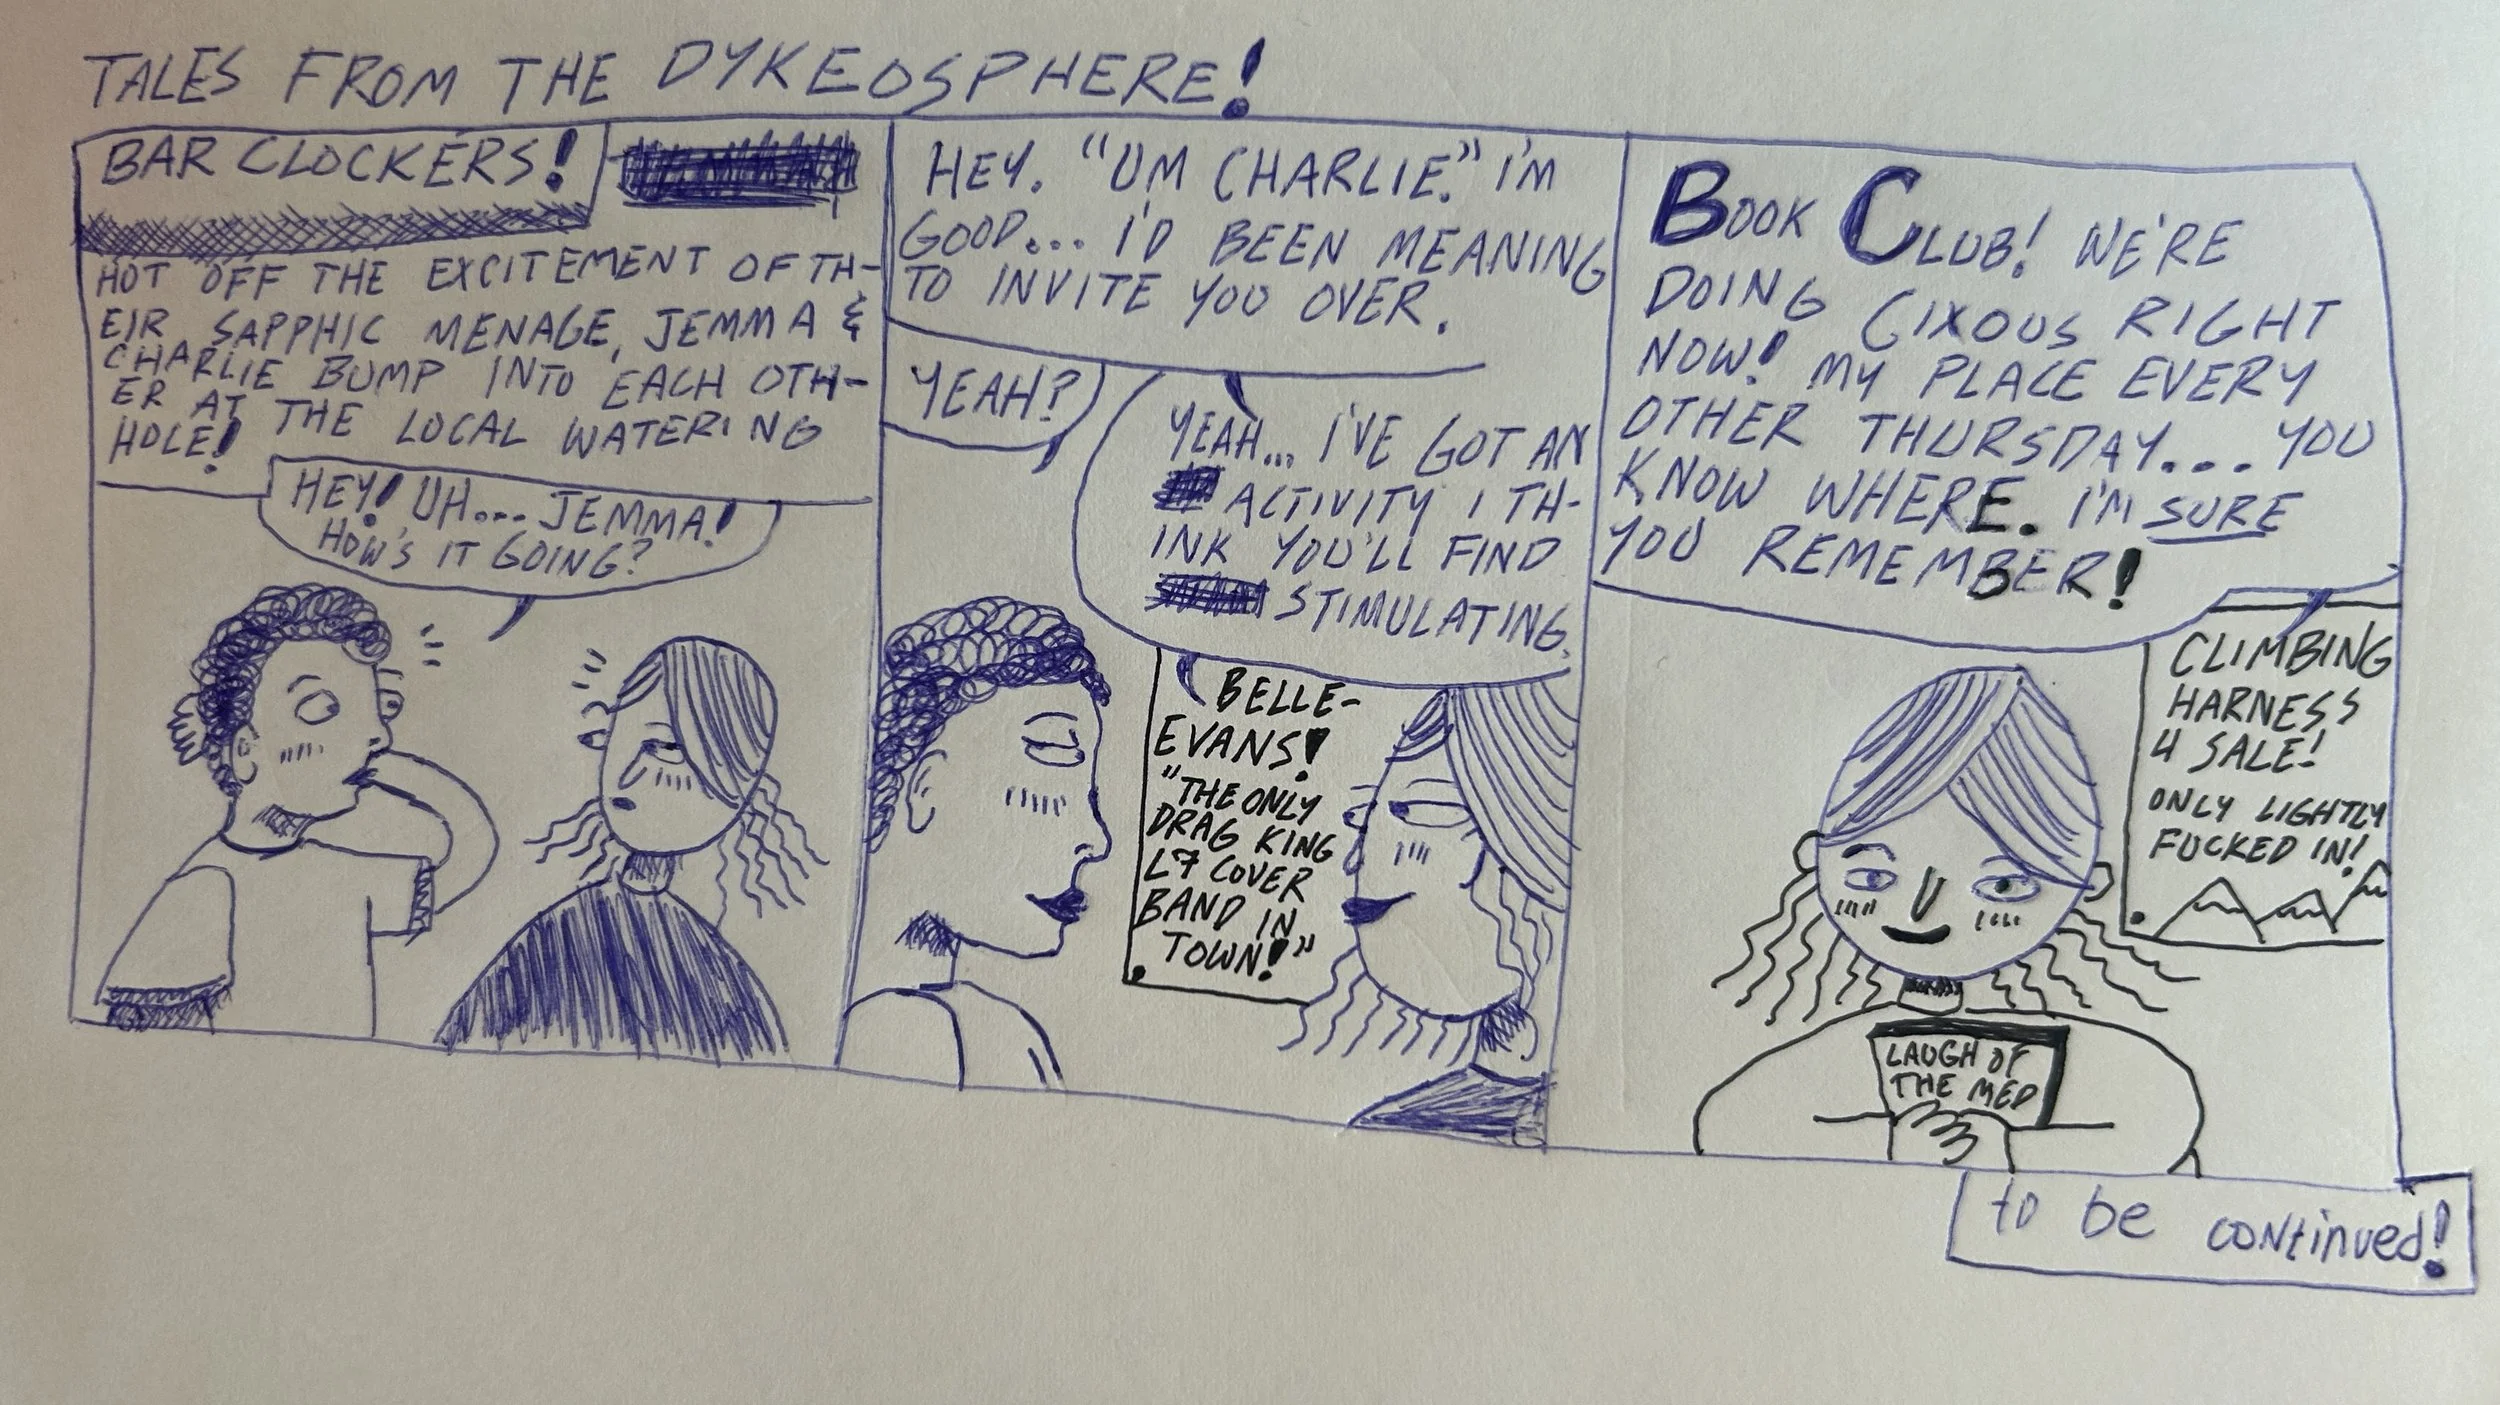 TALES FROM THE DYKEOSPHERE!
BAR CLOCKERS!
HOT OFF THE EXCITEMENT OF TH-
EIR SAPPHIC MENAGE, JEMMA &
CHARLIE BUMP INTO EACH OTH-
ER AT THE LOCAL WATERING
HOLE!
HEY! UH.... JEMMA!
HOW'S IT GOING?
HEY. "UM CHARLIE." I'M
GOOD... I'D BEEN MEANING
TO INVITE YOU OVER.
YEAH?
YEAH... I'VE GOT AN
ACTIVITY I TH-
INK YOU'LL FIND
STIMULATING.
BELLE-
EVANS!
"THE ONLY
DRAG KING
L7 COVER
BAND IN
TOWN!"
BOOK CLUB! WE'RE
DOING CIXOUS RIGHT
NOW! MY PLACE EVERY
OTHER THURSDAY.... YOU
KNOW WHERE. I'M SURE
YOU REMEMBER!
CLIMBING
HARNESS
4 SALE!
ONLY LIGHTLY
FUCKED IN!
LAUGH OF
THE MED
to be continued!